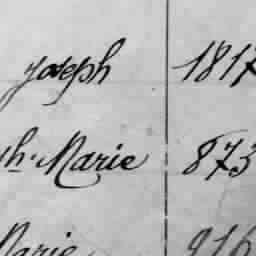 Joseph 1817
ph-Marie 873
Marie 916